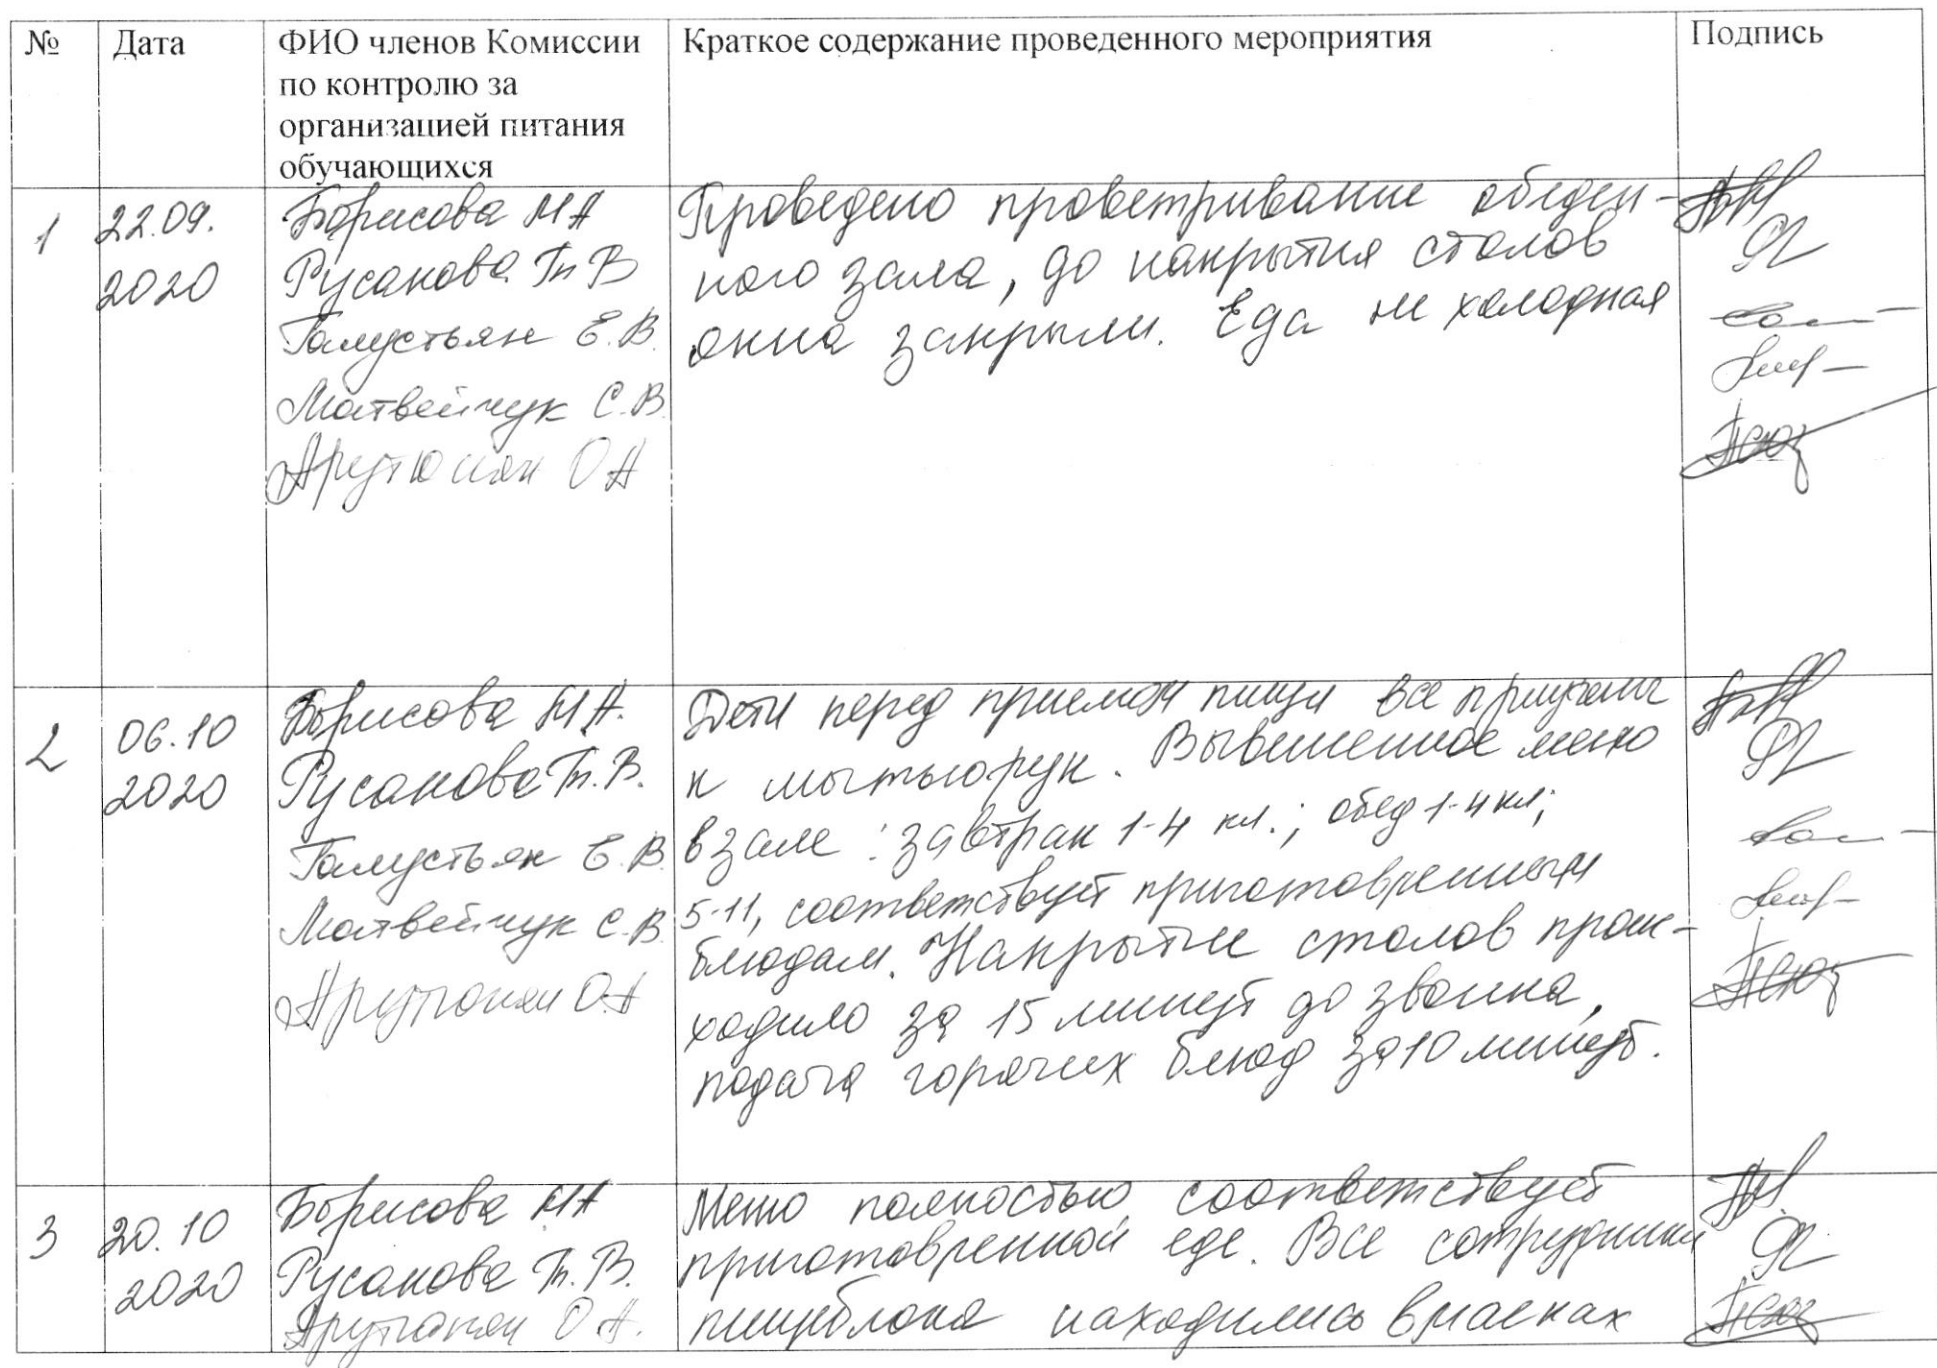 №
Дата
ФИО членов Комиссии
по контролю за
организацией питания
обучающихся
Краткое содержание проведенного мероприятия
Подпись
1
22.09.
2020
Борисова М А
Русанова Т В
Галустьян Е.В.
Матвейчук С.В.
Арутюнян О А
Проведено проветривание обеден-
ного зала, до накрытия столов
окна закрыли. Еда не холодная
2
06.10
2020
Борисова М А.
Русанова Т.В.
Галустьян Е.В
Матвейчук С.В.
Арутюнян О.А
Дети перед приемом пищи все приучены
к мытью рук. Вывешенное меню
в зале: завтрак 1-4 кл.; обед 1-4 кл;
5-11, соответствует приготовленным
блюдам. Накрытие столов проис-
ходило за 15 минут до звонка,
подача горячих блюд за 10 минут.
3
20.10
2020
Борисова М А
Русанова Т.В.
Арутюнян О А.
Меню полностью соответствует
приготовленной еде. Все сотрудники
пищеблока находились в масках